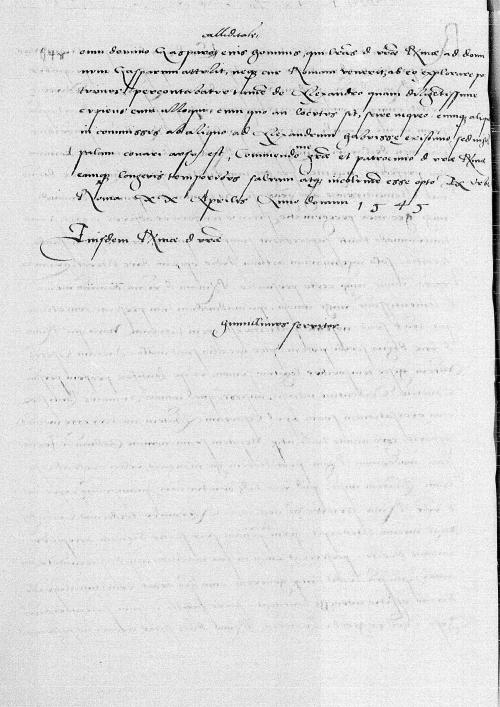 calliditate,
omni domino Gasparo, eius genuinus, qui l̃ras d. vr̃æ R.mæ ad domi
num Gasparum attulit, neq. cur Romam venerit, ab eo explorare po
tuimus, percontabatur tamen de Alexandro quam diligentissime
cupiens eum alloqui, cum quo an locutus sit, sane nescio, eumq. aliquid
in commissis ab aliquo ad Alexandrum habuisse existimo, sed
conari ausus est, Commendo me gr̃æ et patrocinio d. vr̃æ R.mæ
eamq. longevis temporibus salvam atq. incolumem esse opto. Ex Urbe
Roma XX Aprilis Anno domini 1545
Eiusdem R.mæ d. vr̃æ
humillimus servitor,